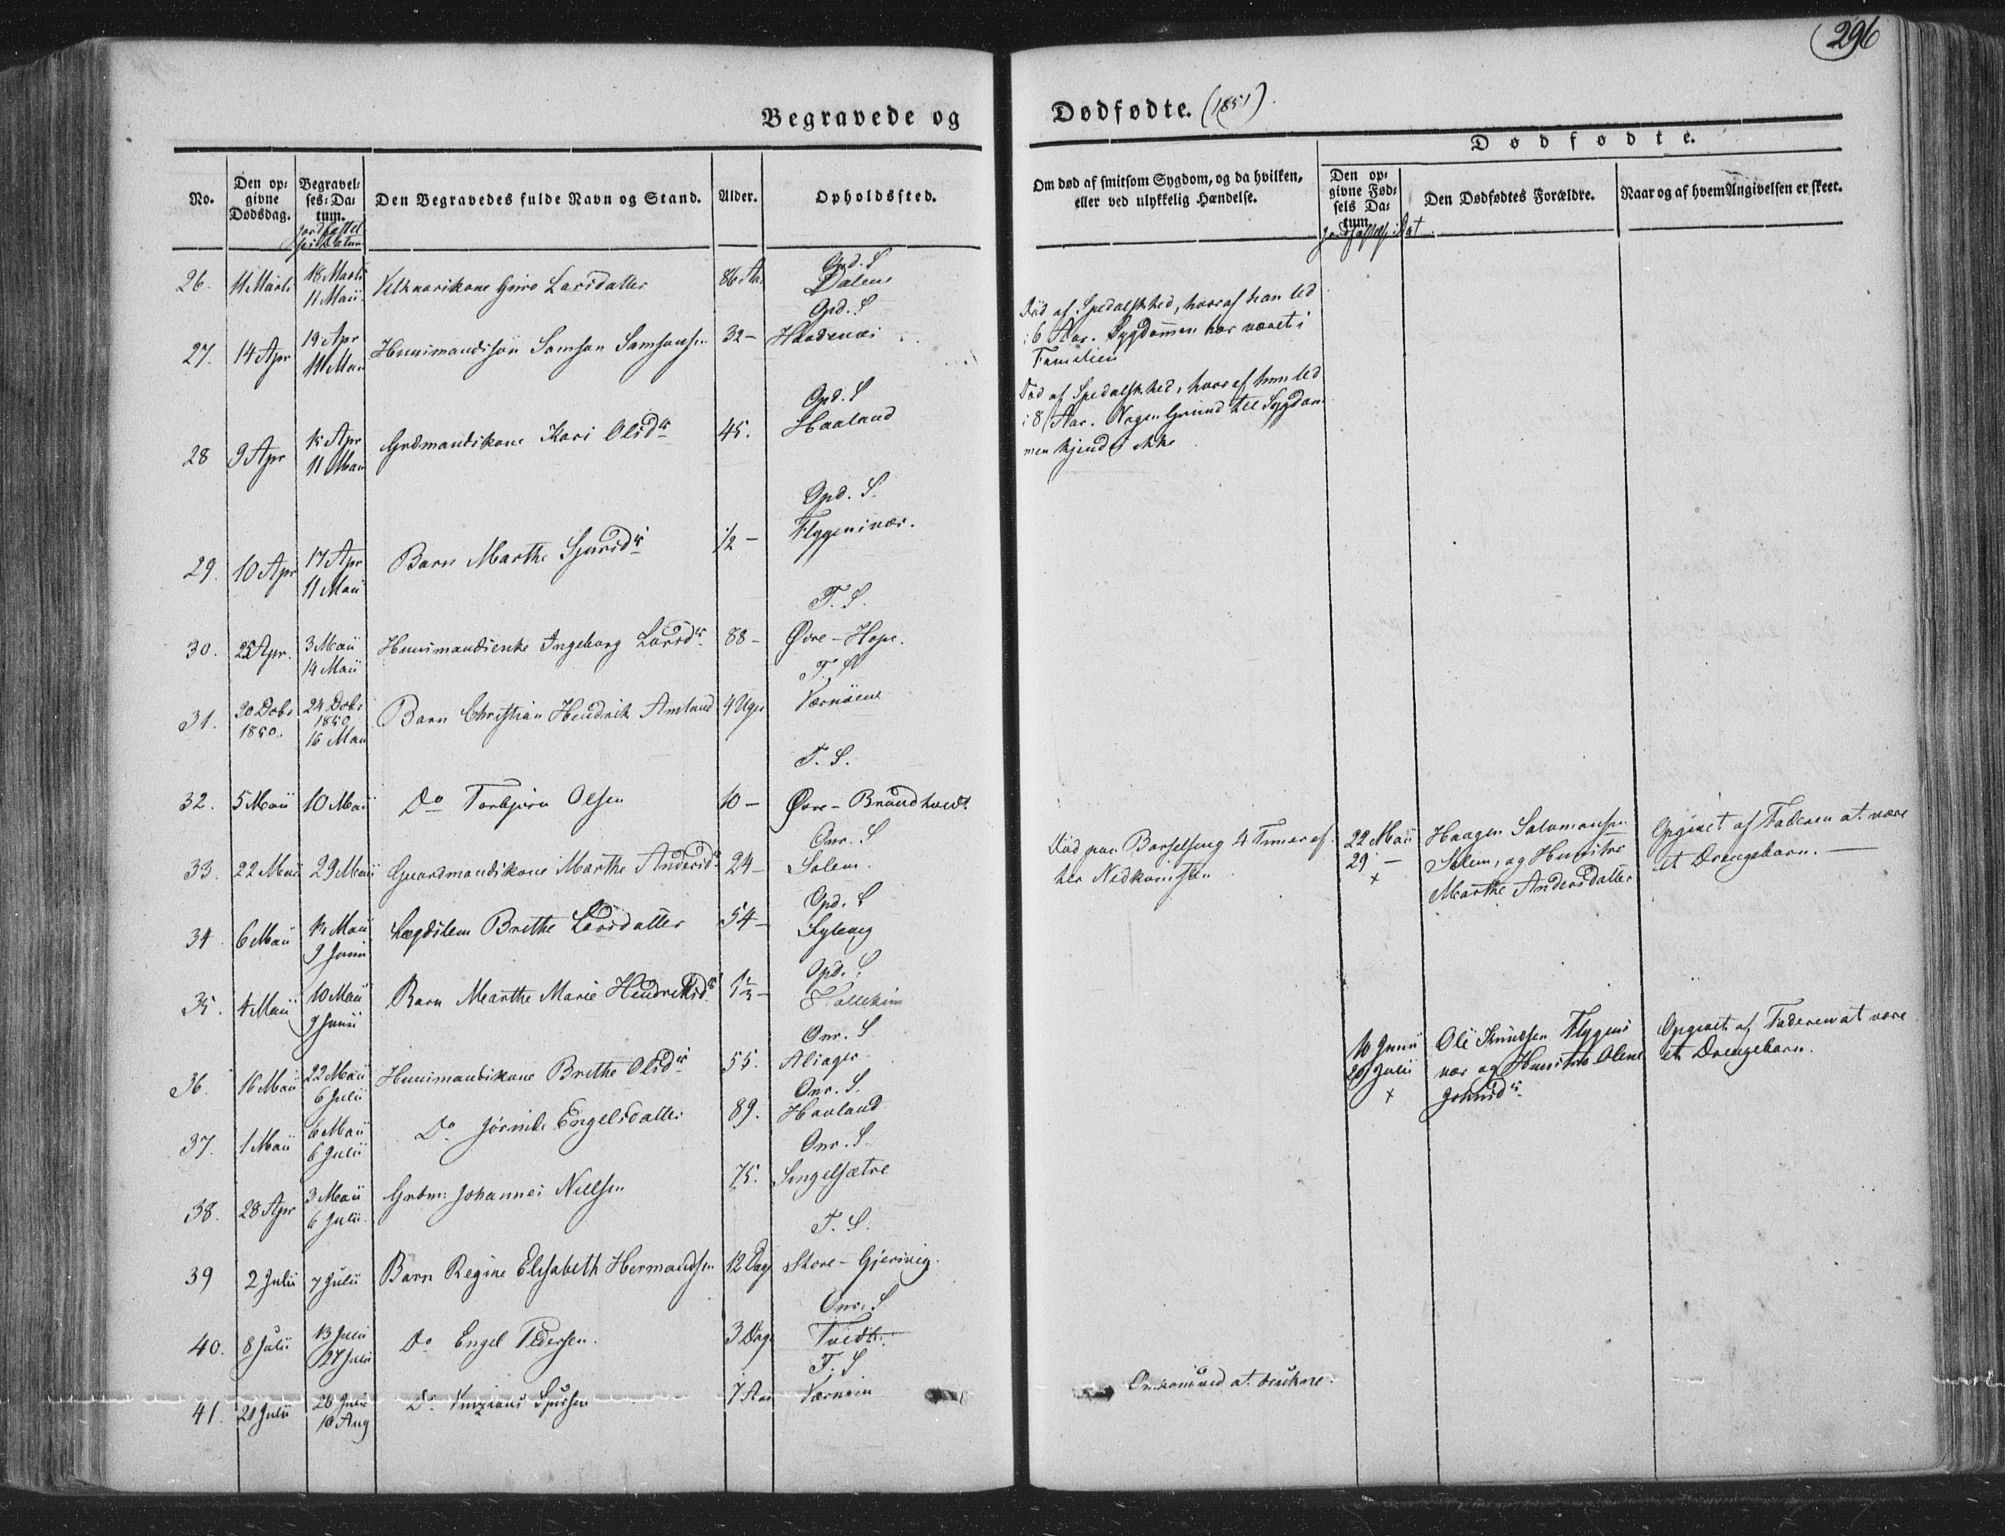 296
Begravede og Dødfødte. (1851).
Dødfødte.
No.
Den op-
givne
Dødsdag.
Begravel-
ses-Da-
tum.
Den Begravedes fulde Navn og Stand.
Alder.
Opholdssted.
Om død af smitsom Sygdom, og da hvilken,
eller ved ulykkelig Hændelse.
Den op-
givne Fød-
sels Da-
tum.
Den Dødfødtes Forældre.
Naar og af hvem Angivelsen er skeet.
26. 11 Marts 18 Marts 11 Maii Larsdatter 86 Aar Opd. S Dalen
27. 14 Apr 19 Apr 11 Maii Huusmandssøn Samson Samsonsen 32 – Opd. S
Død af Spedalskhed, hvoraf han led
i 6 Aar. Sygdommen har været i
Familien
28 9 Apr 15 Apr 11 Maii Grdmandskone Kari Olsdr 45. Opd. S Haaland
Død af Spedalskhed, hvoraf hun led
i 8 Aar. Nogen Grund til Sygdom
men kjendes ikke
29. 10 Apr 17 Apr 11 Maii Barn Marthe Sjursdr 1/2 – Opd. S. Flygensvær.
30. 25 Apr. 3 Maii 14 Maii Huusmandsenke Ingeborg Larsdr 88 – T. S. Øvre-Hope.
31. 20 Dcbr 1850. 24 Dcbr 1850 16 Maii Barn Christian Hendrik Amland 4 Uger T. S Værnøen
32. 5 Maii 10 Maii Do Torbjørn Olsen 10 – T. S. Øvre-Brandtvedt
33. 22 Maii 29 Maii Gaardmandskone Marthe Andersdr 24 – Onr. S Solem.
Død paa Barselseng 4 Timer ef-
ter Nedkomsten
22 Maii
29 –
+
Haagen Salamonsen
Solem, og Hustrue
Marthe Andersdatter
Opgivet af Faderen at være
et Drengebarn. –
34. 6 Maii 12 Maii 9 Junii Lægdslem Brithe Larsdatter 54 – Opd. S Lyleng
35. 4 Maii 10 Maii 9 Junii Barn Marthe Marie Hendriksdr Opd. S
36. 16 Maii 22 Maii 6 Julii Huusmandskone Brithe Olsdr 55. Onr. S Alsager
10 Junii
20 Julii
+
Ole Knudsen Flygens
vær og Hustrue Olene
Opgivet af Faderen at være
et Drengebarn.
37. 1 Maii 6 Maii 6 Julii Do Engelsdatter 89. Onr. S. Haaland
38. 28 Apr 3 Maii 6 Julii Grdm: Johannes Nielsen 75. Onr. S. Singelsætre
39 2 Julii 7 Julii Barn Regine Elisabeth Hermandsen 12 Dage T. S. Store-Gjerevig.
40. 8 Julii 13 Julii 27 Julii Do Engel Pedersen. 3 Dage Onr. S Tvedt.
41. 21 Julii 26 Julii 10 Aug Do Sjursen 7 Aar T. S Værnøen
Omkommed at drukne.